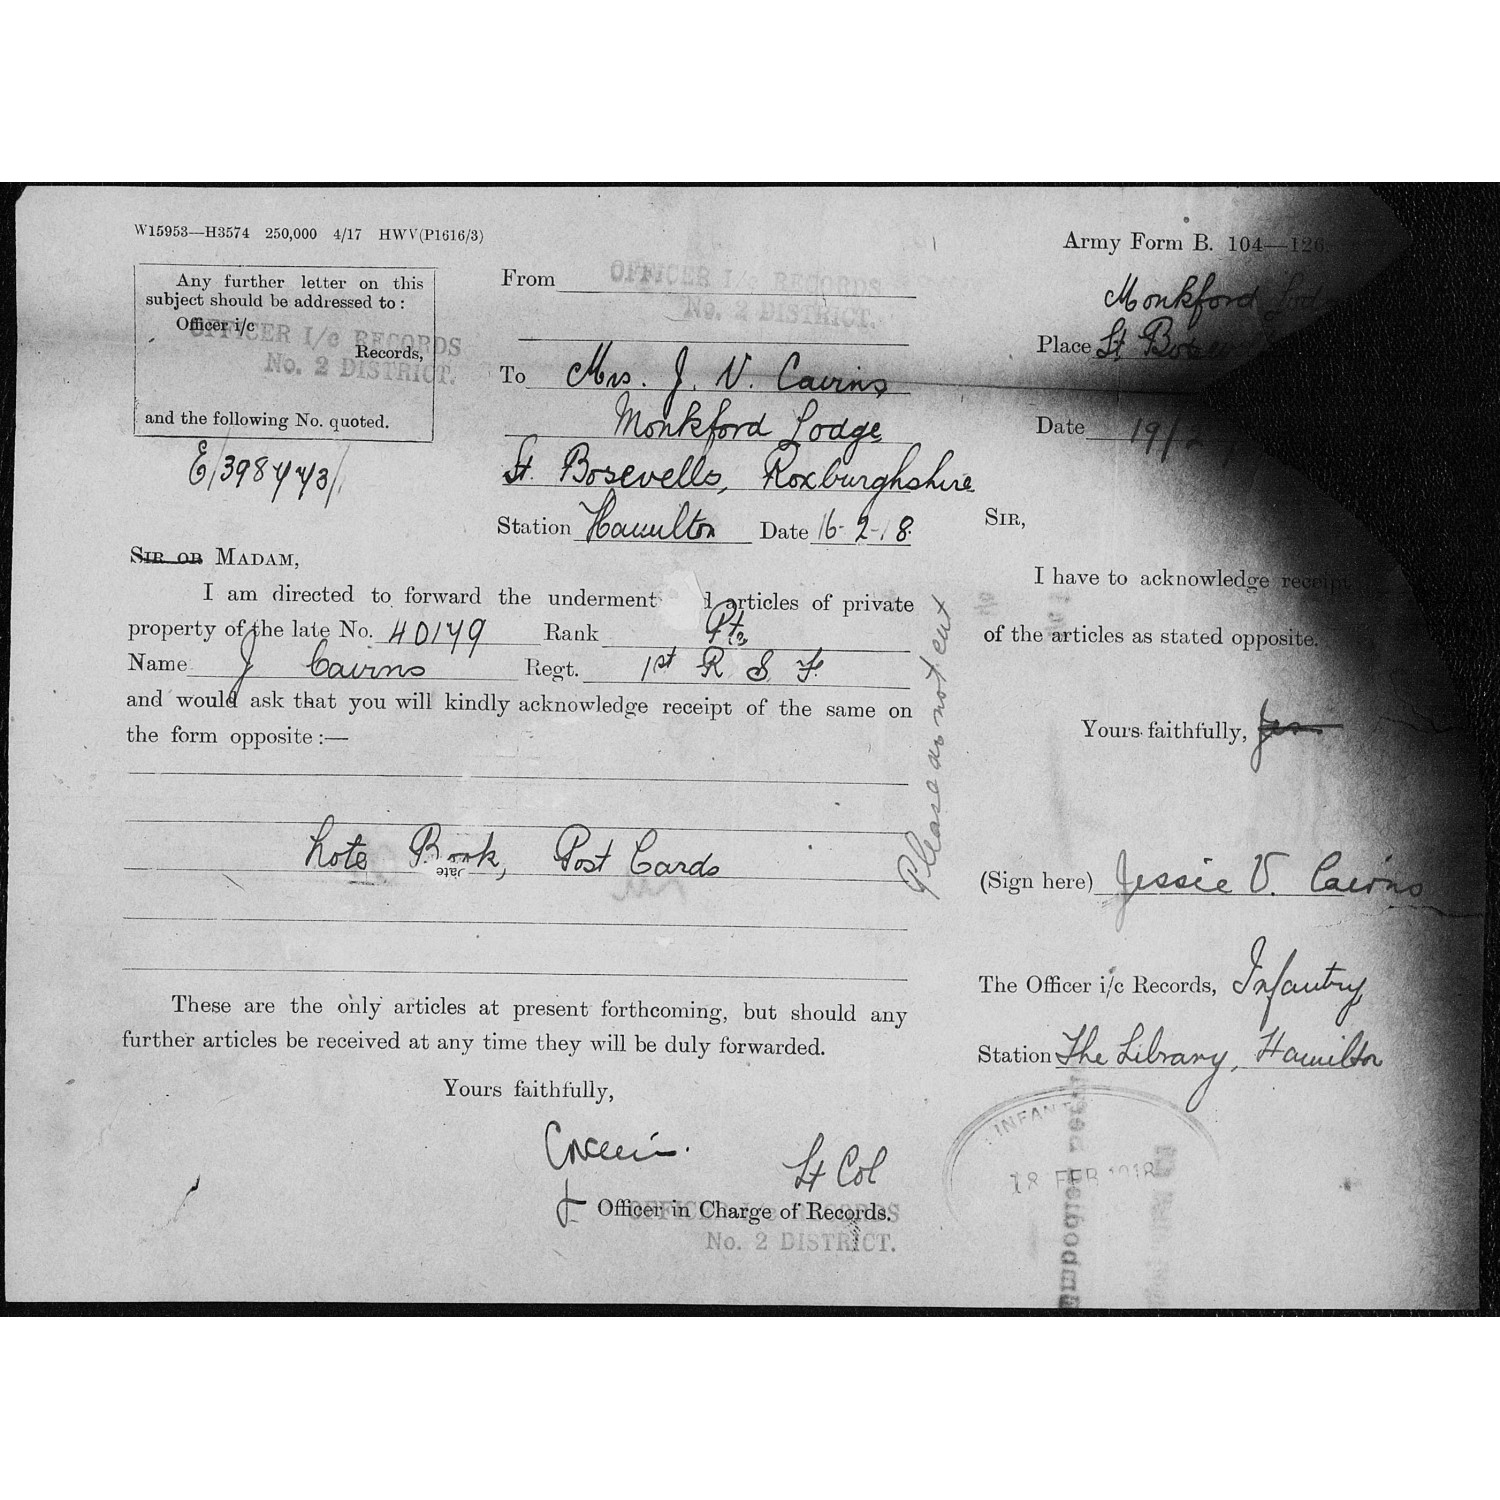 W15953—H3574 250,000 4/17 HWV(P1616/3)
Any further letter on this
subject should be addressed to :
Officer i/c
OFFICER I/c RECORDS
Records,
No. 2 DISTRICT.
and the following No. quoted.
E/398443/
From
OFFICER I/c RECORDS
No. 2 DISTRICT.
To Mrs. J. V. Cairns
Monkford Lodge
St. Bosevells, Roxburghshire
Station Hamilton Date 16-2-18.
SIR OR MADAM,
I am directed to forward the underment d articles of private
property of the late No. 40149 Rank Pte
Name J Cairns Regt. 1st R S F.
and would ask that you will kindly acknowledge receipt of the same on
the form opposite :—
Note Book, Post Cards
These are the only articles at present forthcoming, but should any
further articles be received at any time they will be duly forwarded.
Yours faithfully,
Lt Col
Officer in Charge of Records.
OFFICER I/c RECORDS
No. 2 DISTRICT.
Please do not cut
Army Form B. 104—126.
Monkford Lod
Place St Bos
Date 19/2
SIR,
I have to acknowledge receipt
of the articles as stated opposite.
Yours faithfully, Jes
(Sign here) Jessie V. Cairns
The Officer i/c Records, Infantry
Station The Library, Hamilton
INFANT
18 FEB 1918